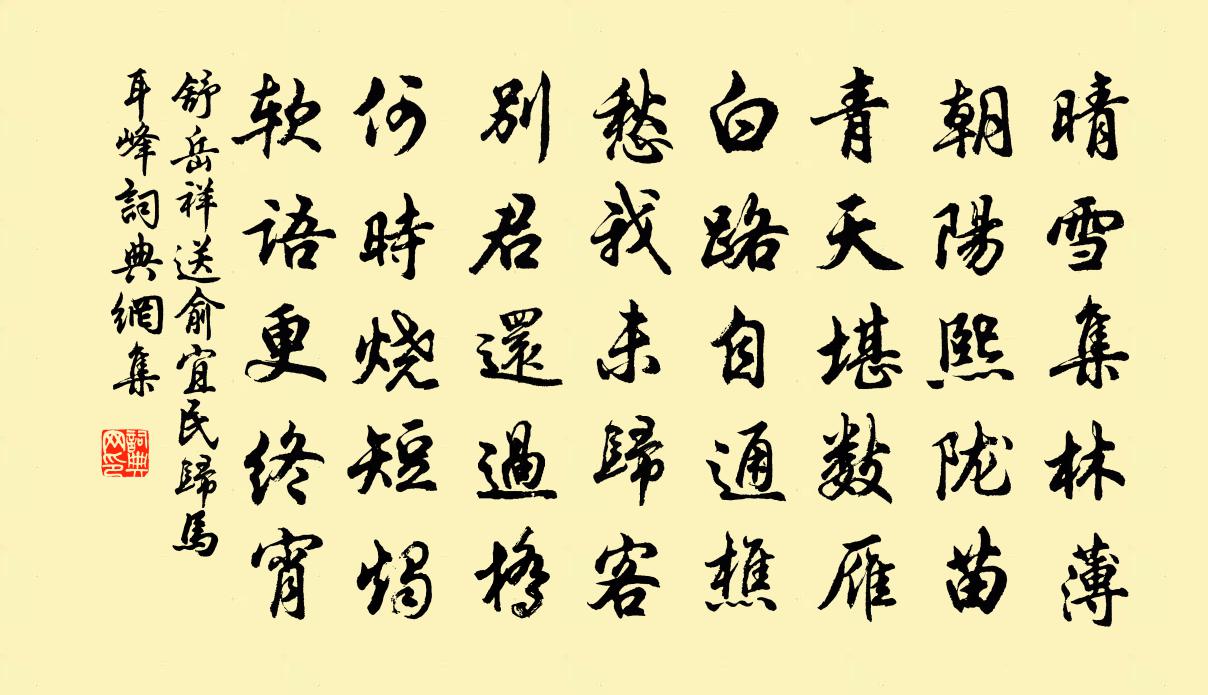 晴雪集林薄
朝陽熙陇苗
青天堪數雁
白路自通樵
愁我未歸客
别君還過橋
何時烧短燭
软語更终宵
舒岳祥送俞宜民歸馬
耳峰詞典網集
詞典
网印